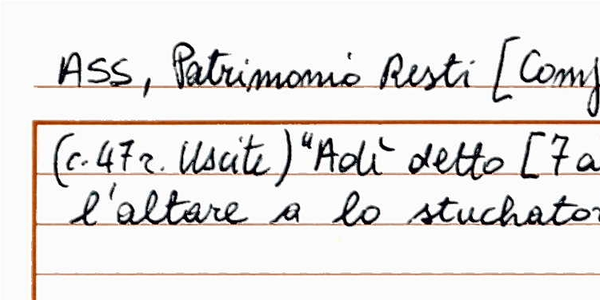 ASS, Patrimonio Resti [Comp
(c. 47r. Uscite) "Adì detto [7 a
l'altare a lo stuchator